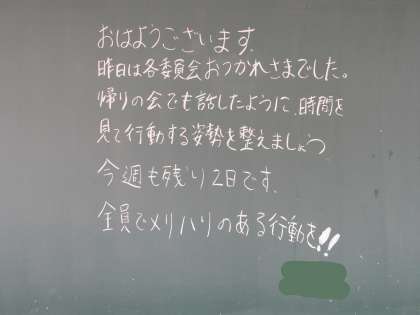 おはようございます.
昨日は各委員会おつかれさまでした。
帰りの会でも話したように、時間を
見て行動する姿勢を整えましょう
今週も残り2日です.
全員でメリハリのある行動を!!